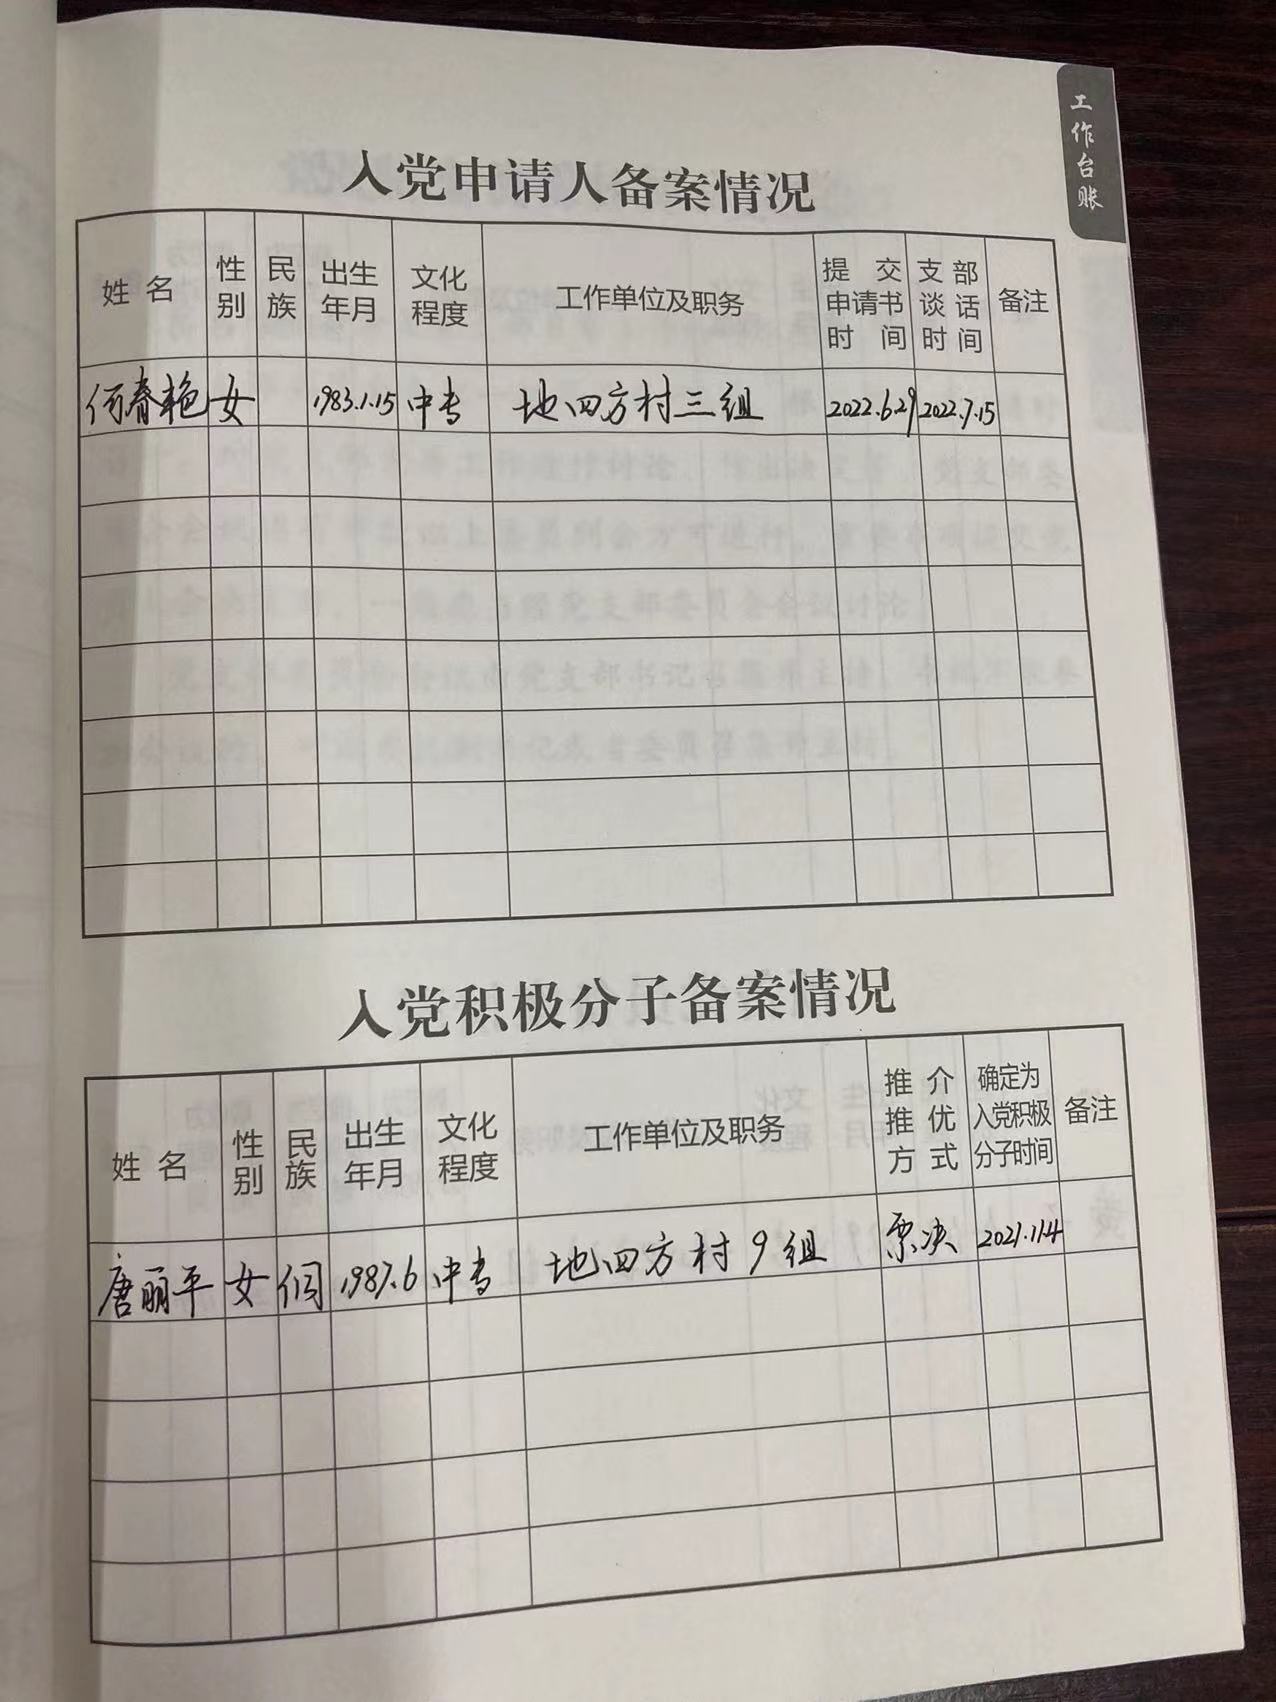 工作台账
入党申请人备案情况
姓名 性别 民族 出生年月 文化程度 工作单位及职务 提交申请书时间 支部谈话时间 备注
何春艳 女 1983.1.15 中专 地四方村三组 2022.6.29 2022.7.15
入党积极分子备案情况
姓名 性别 民族 出生年月 文化程度 工作单位及职务 推介推优方式 确定为入党积极分子时间 备注
唐丽平 女 侗 1987.6 中专 地四方村9组 票决 2021.11.4